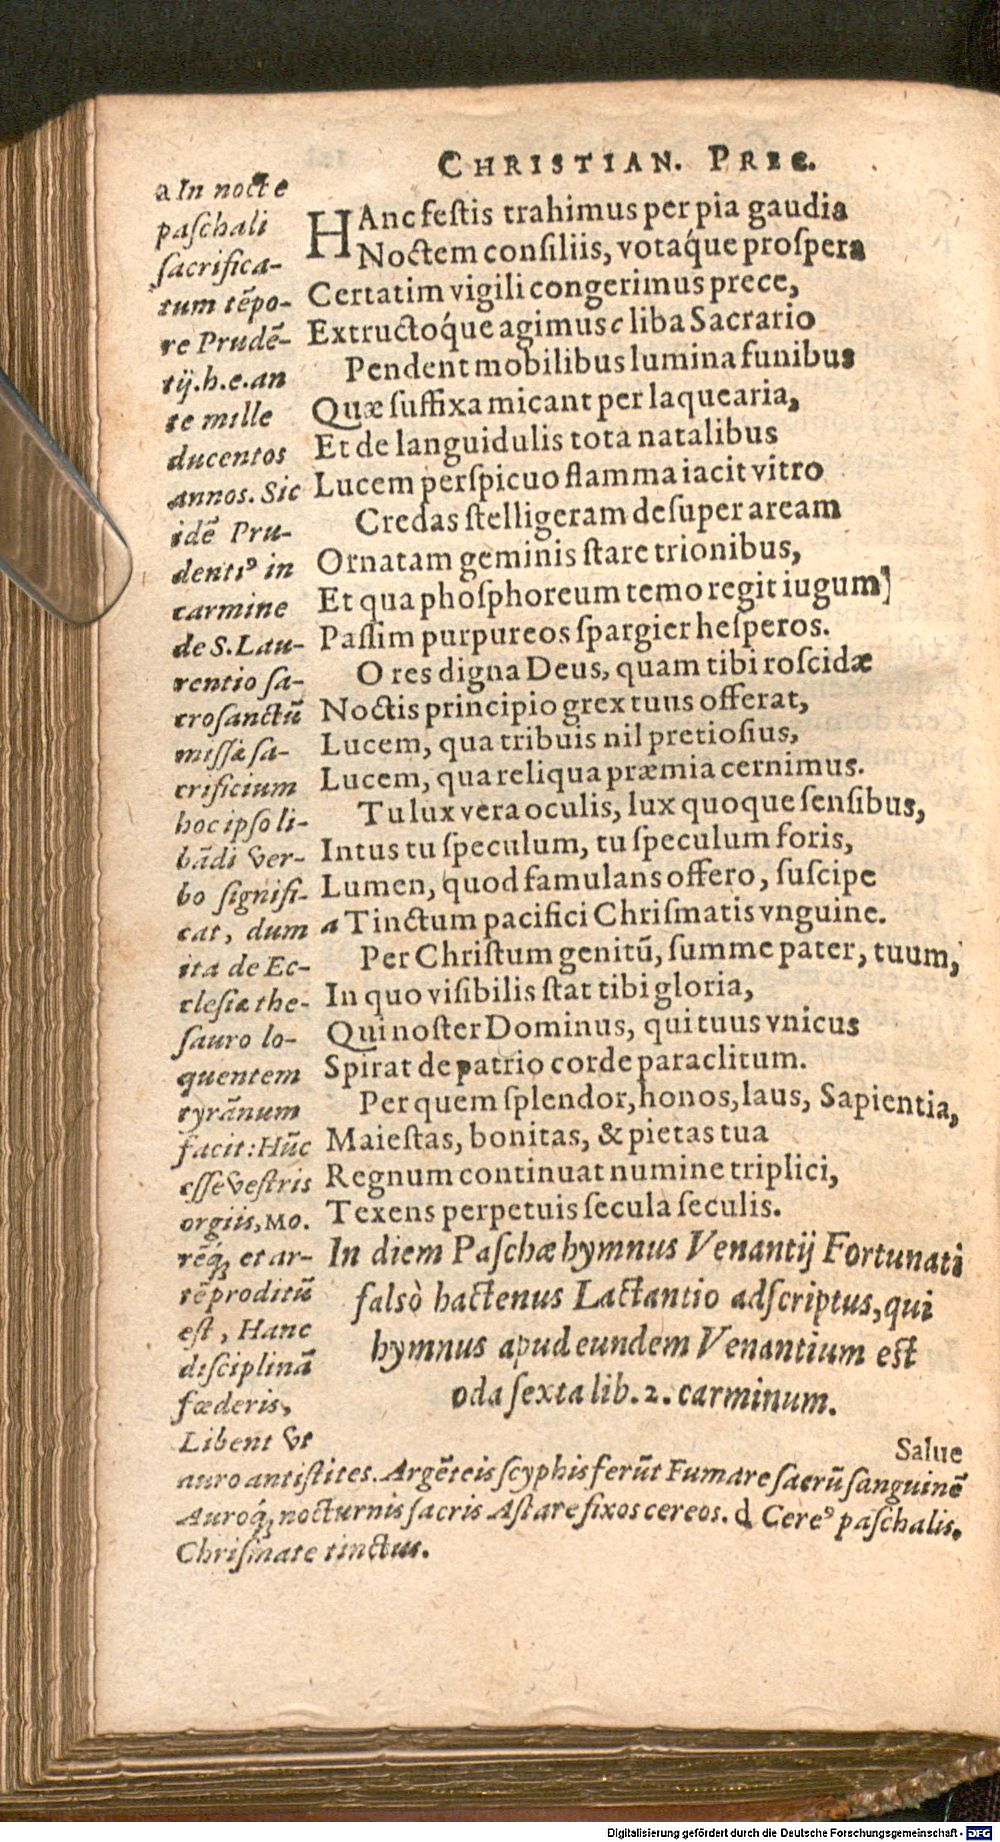 CHRISTIAN. PREC.
HAnc festis trahimus per pia gaudia
Noctem consiliis, votáque prospera
Certatim vigili congerimus prece,
Extructóque agimus c liba Sacrario
Pendent mobilibus lumina funibus
Quæ suffixa micant per laquearia,
Et de languidulis tota natalibus
Lucem perspicuo flamma iacit vitro
Credas stelligeram desuper aream
Ornatam geminis stare trionibus,
Et qua phosphoreum temo regit iugum)
Passim purpureos spargier hesperos.
O res digna Deus, quam tibi roscidæ
Noctis principio grex tuus offerat,
Lucem, qua tribuis nil pretiosius,
Lucem, qua reliqua præmia cernimus.
Tu lux vera oculis, lux quoque sensibus,
Intus tu speculum, tu speculum foris,
Lumen, quod famulans offero, suscipe
a Tinctum pacifici Chrismatis vnguine.
Per Christum genitū, summe pater, tuum,
In quo visibilis stat tibi gloria,
Qui noster Dominus, qui tuus vnicus
Spirat de patrio corde paraclitum.
Per quem splendor, honos, laus, Sapientia,
Maiestas, bonitas, & pietas tua
Regnum continuat numine triplici,
Texens perpetuis secula seculis.
In diem Paschæ hymnus Venantij Fortunati
falsò hactenus Lactantio adscriptus, qui
hymnus apud eundem Venantium est
oda sexta lib. 2. carminum.
Salue
a In nocte
paschali
sacrifica-
tum tēpo-
re Prudē-
tij. h. e. an
te mille
ducentos
annos. Sic
idē Pru-
dentiꝰ in
carmine
de S. Lau-
rentio sa-
crosanctū
missæ sa-
crificium
hoc ipso li-
bādi ver-
bo signifi-
cat, dum
ita de Ec-
clesiæ the-
sauro lo-
quentem
tyrānum
facit: Hūc
esse vestris
orgiis, MO.
rēq́ꝫ et ar-
tē proditū
est, Hanc
disciplinā
fœderis,
Libent vt
auro antistites. Argēteis scyphis ferūt Fumare sacrū sanguinē
Auroq́ꝫ nocturnis sacris Astare fixos cereos. d Cereꝰ paschalis.
Chrismate tinctus.
Digitalisierung gefördert durch die Deutsche Forschungsgemeinschaft - DFG